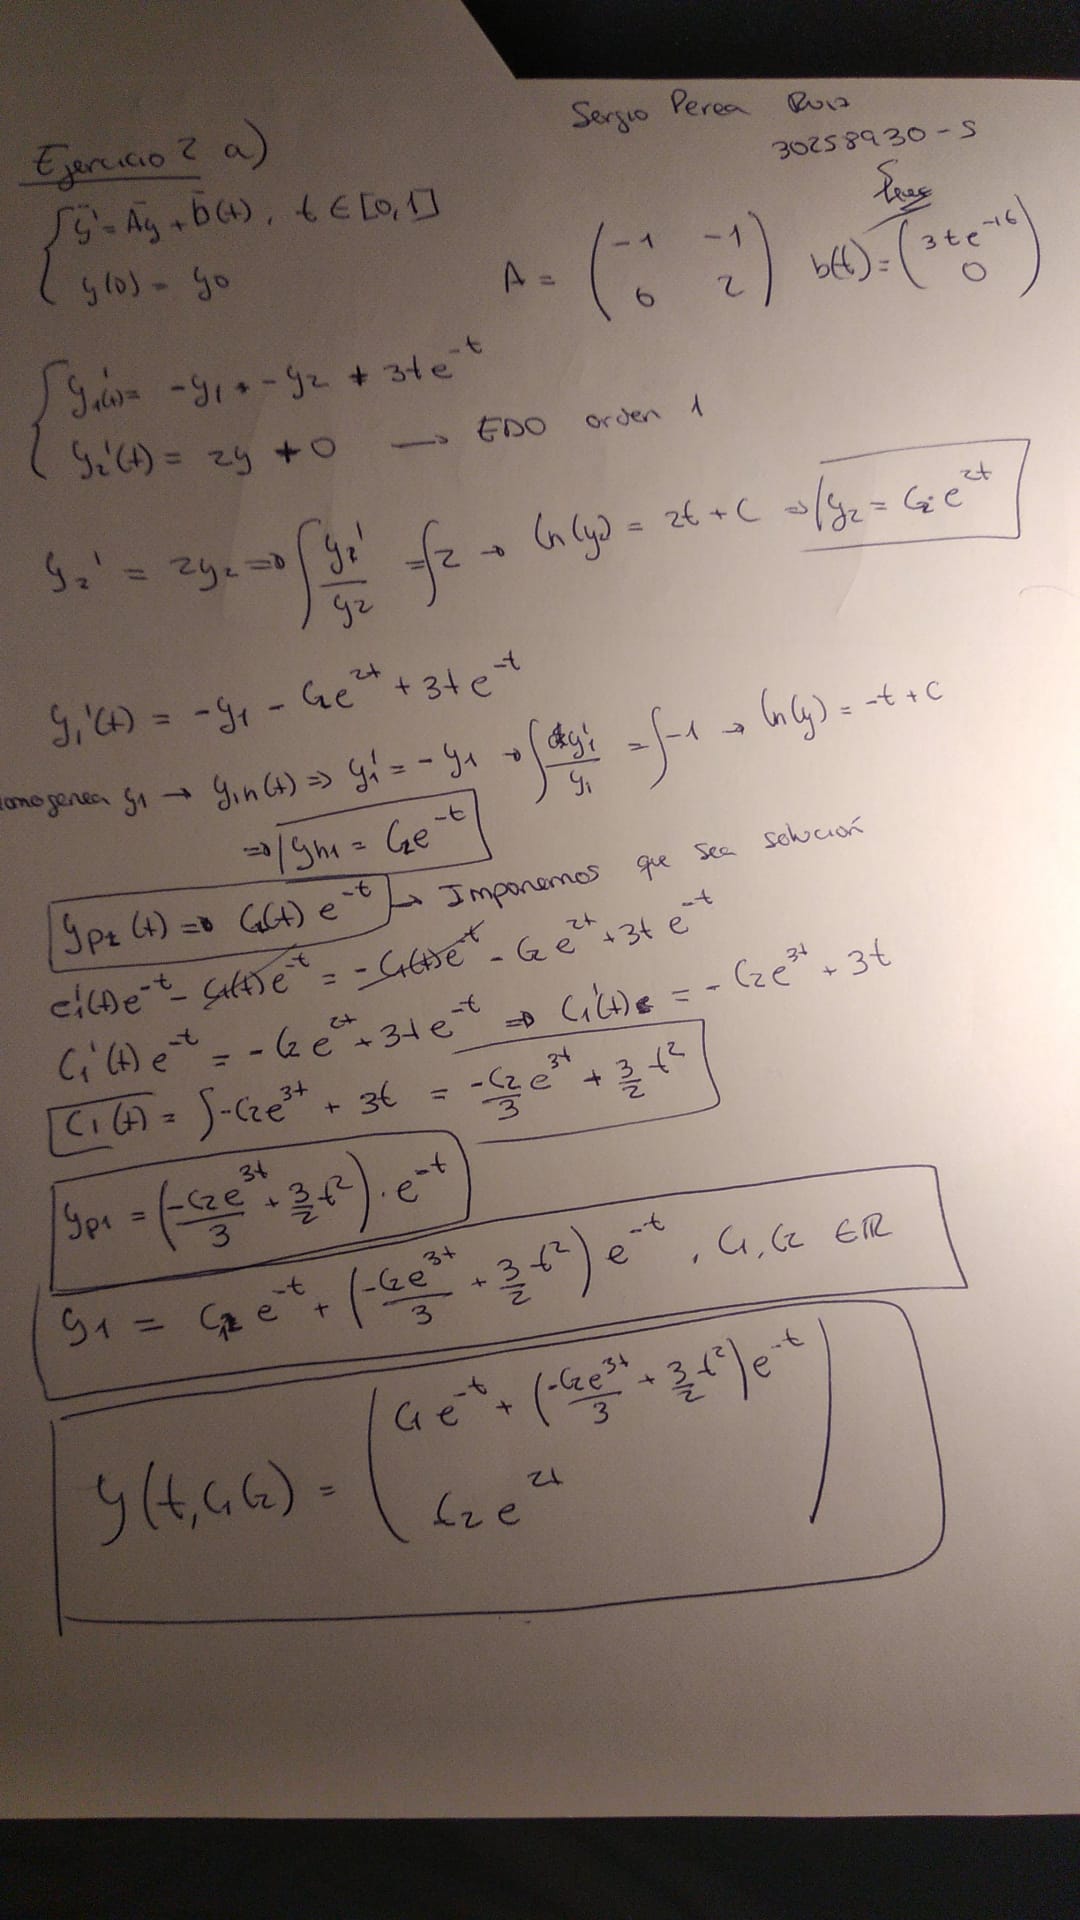 Sergio Perea Ruiz
30258930-S
Ejercicio 2 a)
{ y' = Ay + b(t), t ∈ [0,1]
y(0) = y0
A = ( -1 -1
6 2 ) b(t) = ( 3te^-16
0 )
{ y1'(t) = -y1 + -y2 + 3te^-t
y2'(t) = 2y + 0 → EDO orden 1
y2' = 2y2 ⇒ ∫ y2'/y2 = ∫2 → ln(y2) = 2t + C ⇒ y2 = C2·e^2t
y1'(t) = -y1 - C2e^2t + 3te^-t
homogenea y1 → y1h(t) ⇒ y1' = -y1 → ∫ y1'/y1 = ∫-1 → ln(y) = -t + C
⇒ yh1 = C2e^-t
yp1(t) ⇒ C1(t) e^-t → Imponemos que sea solución
C1'(t)e^-t - C1(t)e^-t = -C1(t)e^-t - C2e^2t + 3te^-t
C1'(t)e^-t = -C2e^2t + 3te^-t ⇒ C1'(t) = -C2e^3t + 3t
C1(t) = ∫-C2e^3t + 3t = -C2/3 e^3t + 3/2 t^2
yp1 = (-C2e^3t/3 + 3/2 t^2)·e^-t
y1 = C1e^-t + (-C2e^3t/3 + 3/2 t^2) e^-t, C1, C2 ∈ ℝ
y(t, C1 C2) = ( C1e^-t + (-C2e^3t/3 + 3/2 t^2)e^-t
C2e^2t )